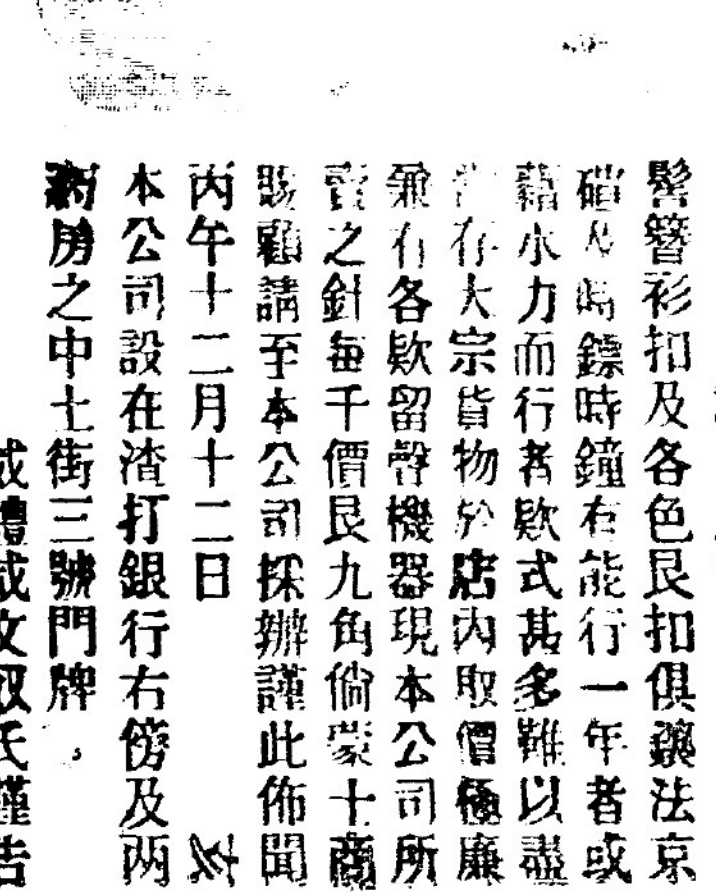 髻簪衫扣及各色艮扣俱鑲法京
碏及時鏢時鐘有能行一年者或
藉水力而行者欵式甚多難以盡
存大宗貨物於店內取價極廉
兼有各欵留聲機器現本公司所
賣之針每千價艮九角倘蒙士商
賜顧請至本公司採辦謹此佈聞
丙午十二月十二日
本公司設在渣打銀行右傍及両
房之中士街三號門牌
成禮成文叔氏謹告